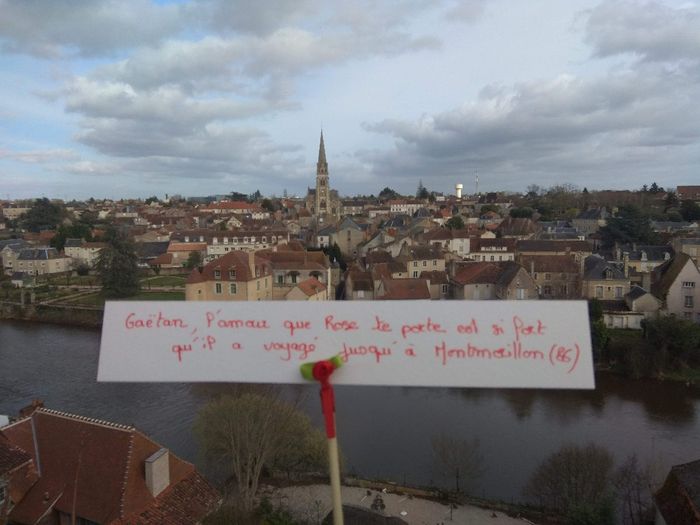 Gaëtan, l'amour que Rose te porte est si fort
qu'il a voyagé jusqu'à Montmorillon (86)